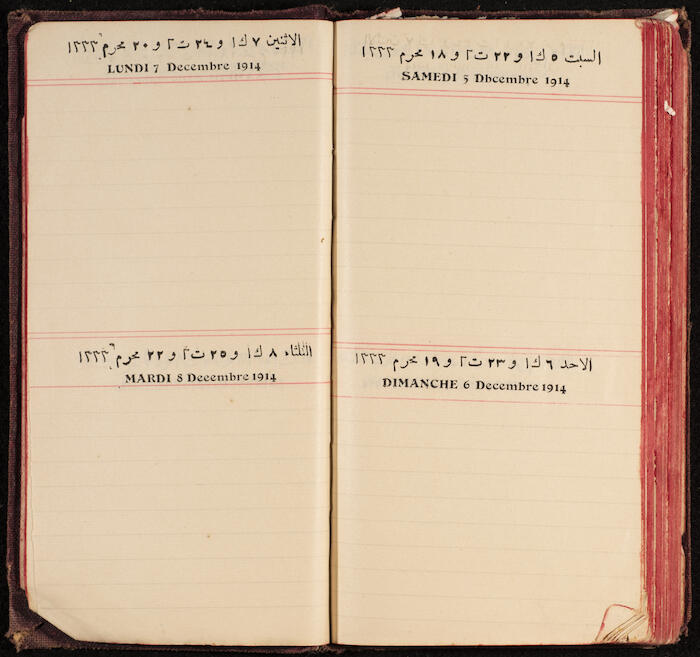 السبت ٥ ك١ و ٢٢ ت٢ و ١٨ محرم ١٣٣٣
SAMEDI 5 Dbcembre 1914
الاحد ٦ ك١ و ٢٣ ت٢ و ١٩ محرم ١٣٣٣
DIMANCHE 6 Decembre 1914
الاثنين ٧ ك١ و ٢٤ ت٢ و ٢٠ محرم ١٣٣٣
LUNDI 7 Decembre 1914
الثلثاء ٨ ك١ و ٢٥ ت٢ و ٢٢ محرم ١٣٣٣
MARDI 8 Decembre 1914